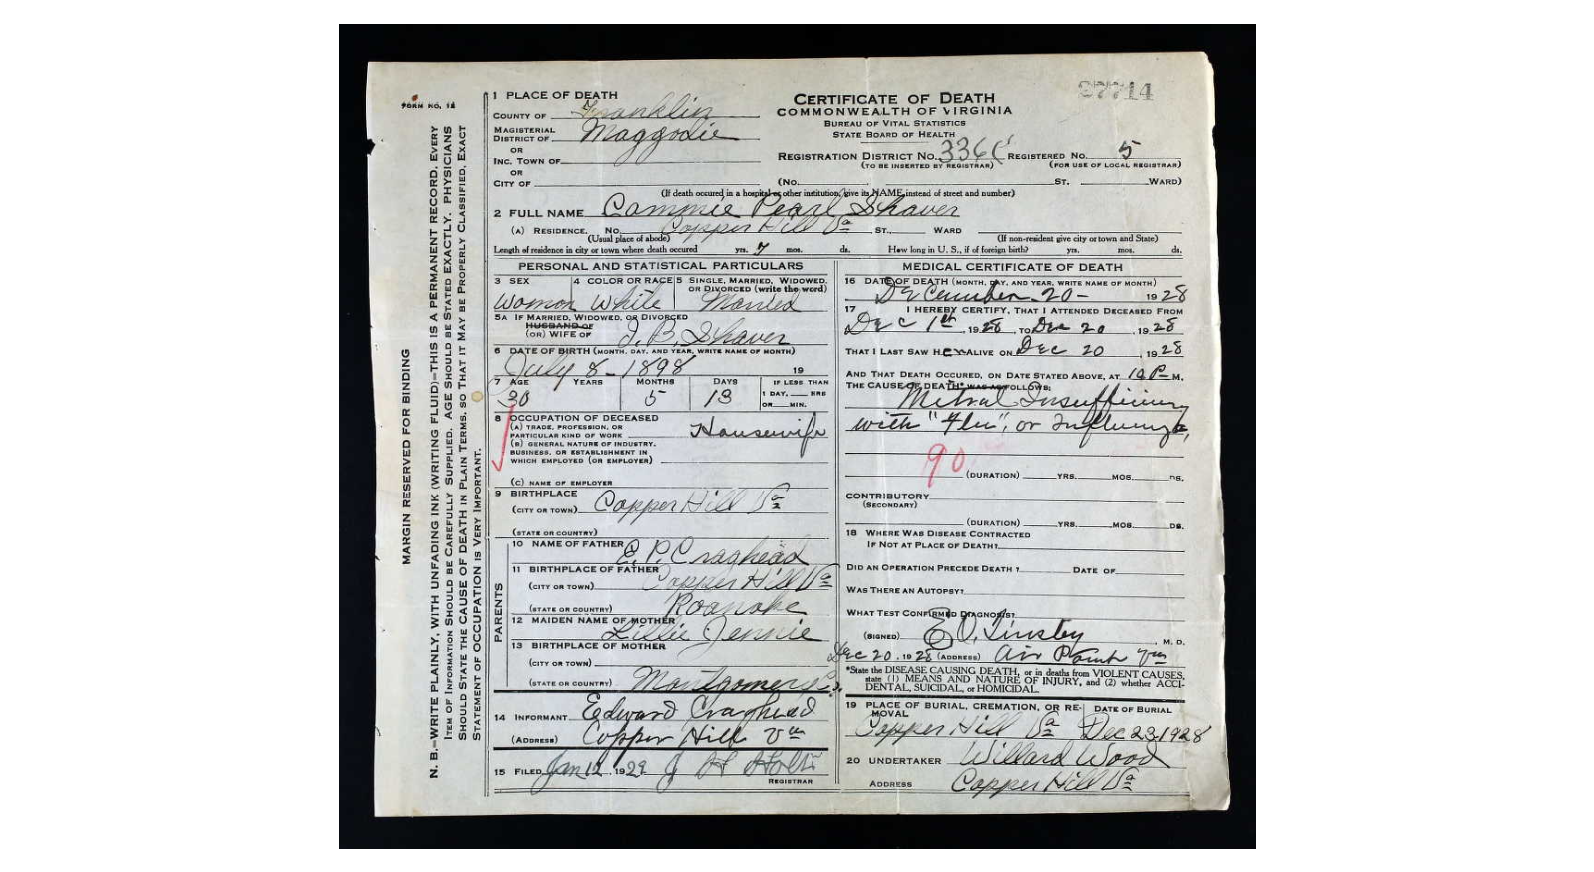 FORM NO. 12
MARGIN RESERVED FOR BINDING
N. B.—WRITE PLAINLY, WITH UNFADING INK (WRITING FLUID)—THIS IS A PERMANENT RECORD. EVERY
ITEM OF INFORMATION SHOULD BE CAREFULLY SUPPLIED. AGE SHOULD BE STATED EXACTLY. PHYSICIANS
SHOULD STATE THE CAUSE OF DEATH IN PLAIN TERMS, SO THAT IT MAY BE PROPERLY CLASSIFIED. EXACT
STATEMENT OF OCCUPATION IS VERY IMPORTANT.
27714
CERTIFICATE OF DEATH
COMMONWEALTH OF VIRGINIA
BUREAU OF VITAL STATISTICS
STATE BOARD OF HEALTH
1 PLACE OF DEATH
COUNTY OF Franklin
MAGISTERIAL DISTRICT OF Maggodie
OR
INC. TOWN OF
OR
CITY OF
REGISTRATION DISTRICT NO. 336 REGISTERED NO. 5
(TO BE INSERTED BY REGISTRAR) (FOR USE OF LOCAL REGISTRAR)
(No. ST. WARD)
(If death occured in a hospital or other institution, give its NAME instead of street and number)
2 FULL NAME Cammie Pearl Shaver
(A) RESIDENCE. No. Copper Hill Va ST., WARD
(Usual place of abode) (If non-resident give city or town and State)
Length of residence in city or town where death occured yrs. 7 mos. ds. How long in U. S., if of foreign birth? yrs. mos. ds.
PERSONAL AND STATISTICAL PARTICULARS
3 SEX 4 COLOR OR RACE 5 SINGLE, MARRIED, WIDOWED, OR DIVORCED (write the word)
Woman White Married
5A IF MARRIED, WIDOWED, OR DIVORCED
HUSBAND OF
(OR) WIFE OF J. B. Shaver
6 DATE OF BIRTH (MONTH, DAY, AND YEAR, WRITE NAME OF MONTH)
July 8-1898 19
7 AGE YEARS MONTHS DAYS IF LESS THAN
30 5 13 1 DAY, HRS
OR MIN.
8 OCCUPATION OF DECEASED
(A) TRADE, PROFESSION, OR
PARTICULAR KIND OF WORK Housewife
(B) GENERAL NATURE OF INDUSTRY,
BUSINESS, OR ESTABLISHMENT IN
WHICH EMPLOYED (OR EMPLOYER)
(C) NAME OF EMPLOYER
9 BIRTHPLACE
(CITY OR TOWN) Copper Hill Va
(STATE OR COUNTRY)
PARENTS
10 NAME OF FATHER E. P. Craghead
11 BIRTHPLACE OF FATHER
(CITY OR TOWN) Copper Hill Va
(STATE OR COUNTRY) Roanoke
12 MAIDEN NAME OF MOTHER
Lillie Jennie
13 BIRTHPLACE OF MOTHER
(CITY OR TOWN)
(STATE OR COUNTRY) Montgomery Co.
14 INFORMANT Edward Craghead
(ADDRESS) Copper Hill Va
15 FILED Jan 12, 1929 J H Holt
REGISTRAR
MEDICAL CERTIFICATE OF DEATH
16 DATE OF DEATH (MONTH, DAY, AND YEAR, WRITE NAME OF MONTH)
December 20- 1928
17 I HEREBY CERTIFY, THAT I ATTENDED DECEASED FROM
Dec 1st, 1928, TO Dec 20, 1928
THAT I LAST SAW HER ALIVE ON Dec 20, 1928
AND THAT DEATH OCCURED, ON DATE STATED ABOVE, AT 10 P M.
THE CAUSE OF DEATH* WAS AS FOLLOWS:
Mitral Insufficiency
with "Flu", or Influenza,
90
(DURATION) YRS. MOS. DS.
CONTRIBUTORY
(SECONDARY)
(DURATION) YRS. MOS. DS.
18 WHERE WAS DISEASE CONTRACTED
IF NOT AT PLACE OF DEATH?
DID AN OPERATION PRECEDE DEATH? DATE OF
WAS THERE AN AUTOPSY?
WHAT TEST CONFIRMED DIAGNOSIS?
(SIGNED) E. O. Tinsley, M. D.
Dec 20, 1928 (ADDRESS) Air Point Va
*State the DISEASE CAUSING DEATH, or in deaths from VIOLENT CAUSES,
state (1) MEANS AND NATURE OF INJURY, and (2) whether ACCI-
DENTAL, SUICIDAL, or HOMICIDAL.
19 PLACE OF BURIAL, CREMATION, OR RE- DATE OF BURIAL
MOVAL
Copper Hill Va Dec 23, 1928
20 UNDERTAKER Willard Wood
ADDRESS Copper Hill Va